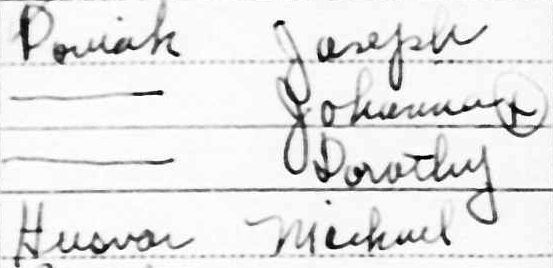 Powiak Joseph
—— Johanna x
—— Dorothy
Husvar Michael